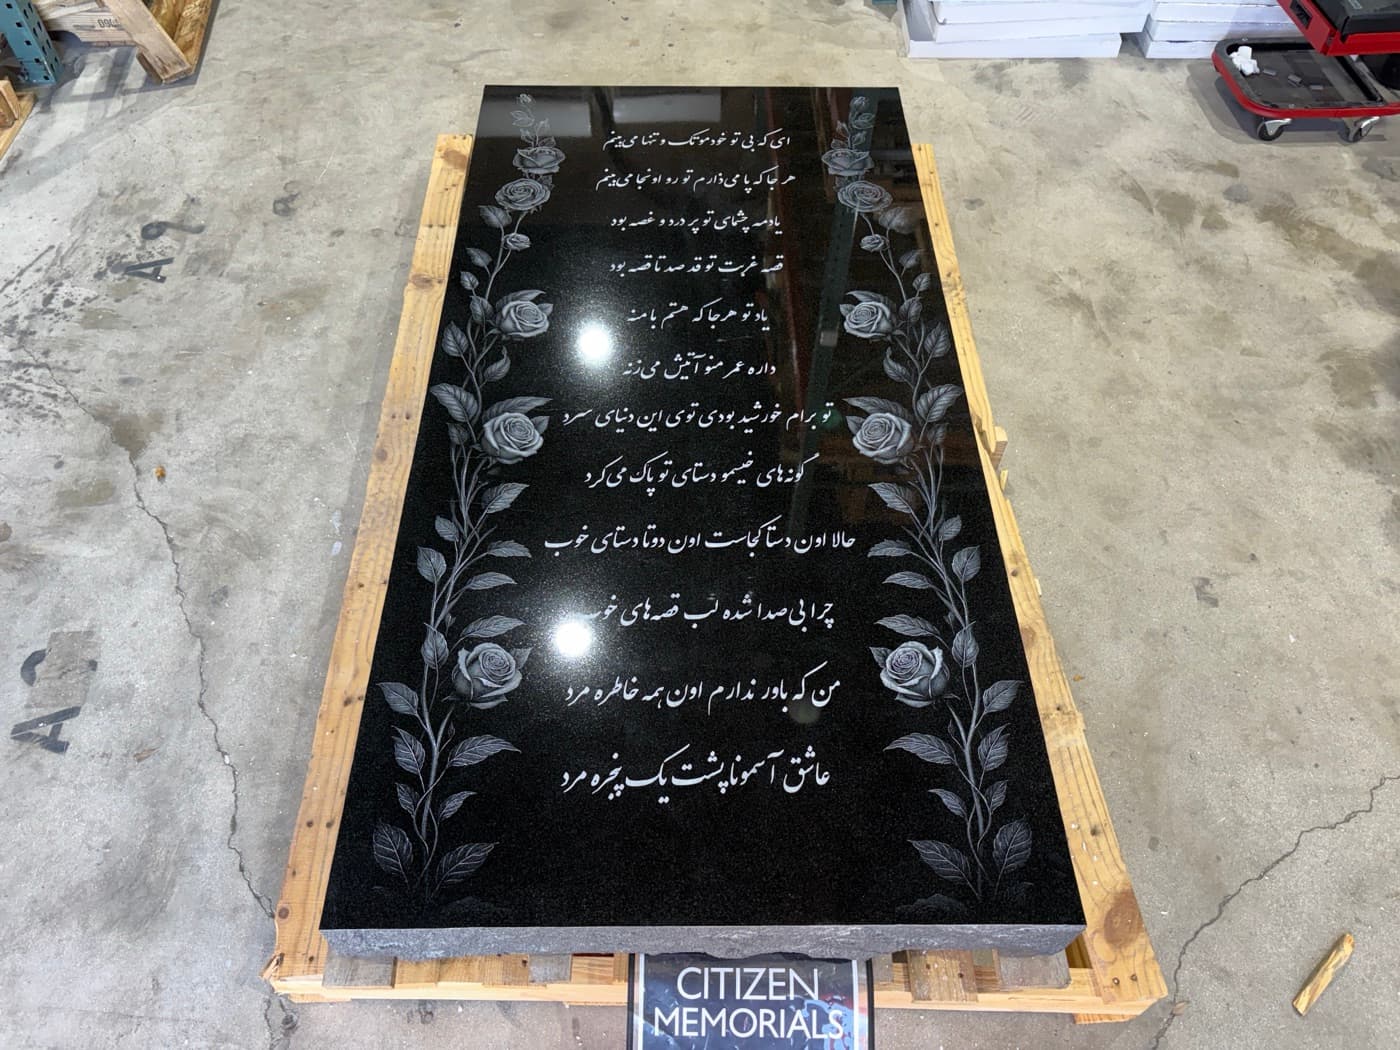 ای که بی تو خودمو تک و تنها می‌بینم
هر جا که پا می‌ذارم تو رو اونجا می‌بینم
یادمه چشمای تو پر درد و غصه بود
قصه غربت تو قد صد تا قصه بود
یاد تو هر جا که هستم با منه
داره عمر منو آتیش می‌زنه
تو برام خورشید بودی توی این دنیای سرد
گونه‌های خیسمو دستای تو پاک می‌کرد
حالا اون دستا کجاست اون دوتا دستای خوب
چرا بی صدا شده لب قصه‌های خوب
من که باور ندارم اون همه خاطره مرد
عاشق آسمونا پشت یک پنجره مرد
CITIZEN
MEMORIALS